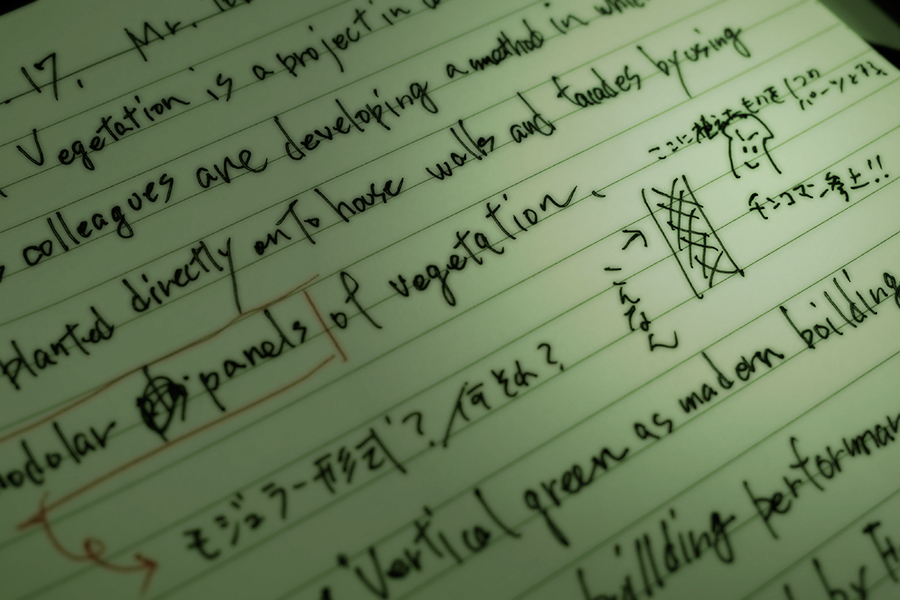 .17, Mr.
Vegetation is a project in
colleagues are developing a method in which
planted directly onto house walls and facades by using
modular panels of vegetation.
ここに植えたものを1つの
パーツとする
チンコマン参上!!
→こんなん
モジュラー形式?/何それ?
Vertical green as modern building
building performan
by